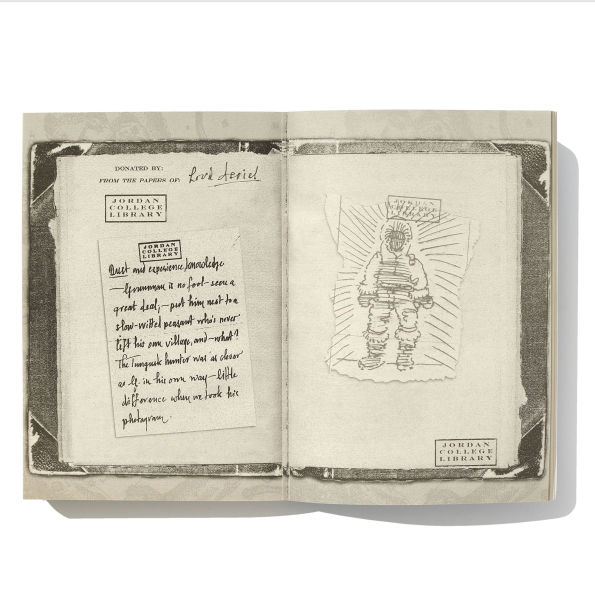 DONATED BY:
FROM THE PAPERS OF: Lord Asriel
JORDAN
COLLEGE
LIBRARY
JORDAN
COLLEGE
LIBRARY
Dust and experience/knowledge
—Grumman is no fool—seen a
great deal;—put him next to a
slow-witted peasant who's never
left his own village, and—what?
The Tungusk hunter was as clever
as G. in his own way—little
difference when we took his
photogram.
JORDAN
COLLEGE
LIBRARY
JORDAN
COLLEGE
LIBRARY